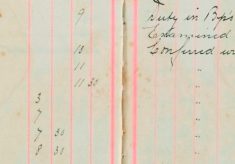 9 Duty in Bps
Examined
10 Conferred w
11 "
11 30 "
3 "
7 "
7 30 "
8 30 "